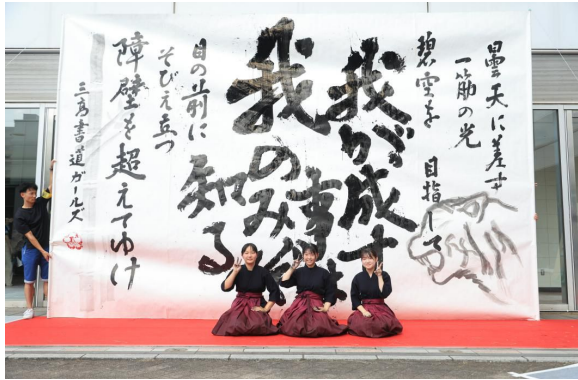 曇天に差す
一筋の光
碧空を
目指して
我が成す
事は
我のみぞ
知る
目の前に
そびえ立つ
障壁を超えてゆけ
三高書道ガールズ